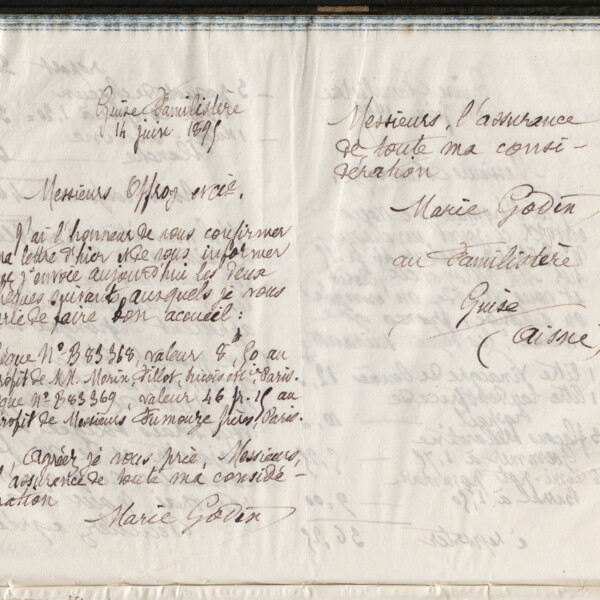 Guise Familistère
14 juin 1895
Messieurs Offroy et Cie.
J'ai l'honneur de vous confirmer
ma lettre d'hier & de vous informer
que j'envoie aujourd'hui les deux
chèques suivant auxquels je vous
prie de faire bon accueil :
chèque N° B 83368, valeur 8 f, 50 au
profit de MM. Morin, Fillot, Paris.
chèque N° B 83369, valeur 46 fr. 15 au
profit de Messieurs Fumouze frères Paris.
agréez je vous prie, Messieurs,
l'assurance de toute ma considé-
ration
Marie Godin
Messieurs, l'assurance
de toute ma consi-
dération
Marie Godin
au Familistère
Guise
(Aisne)